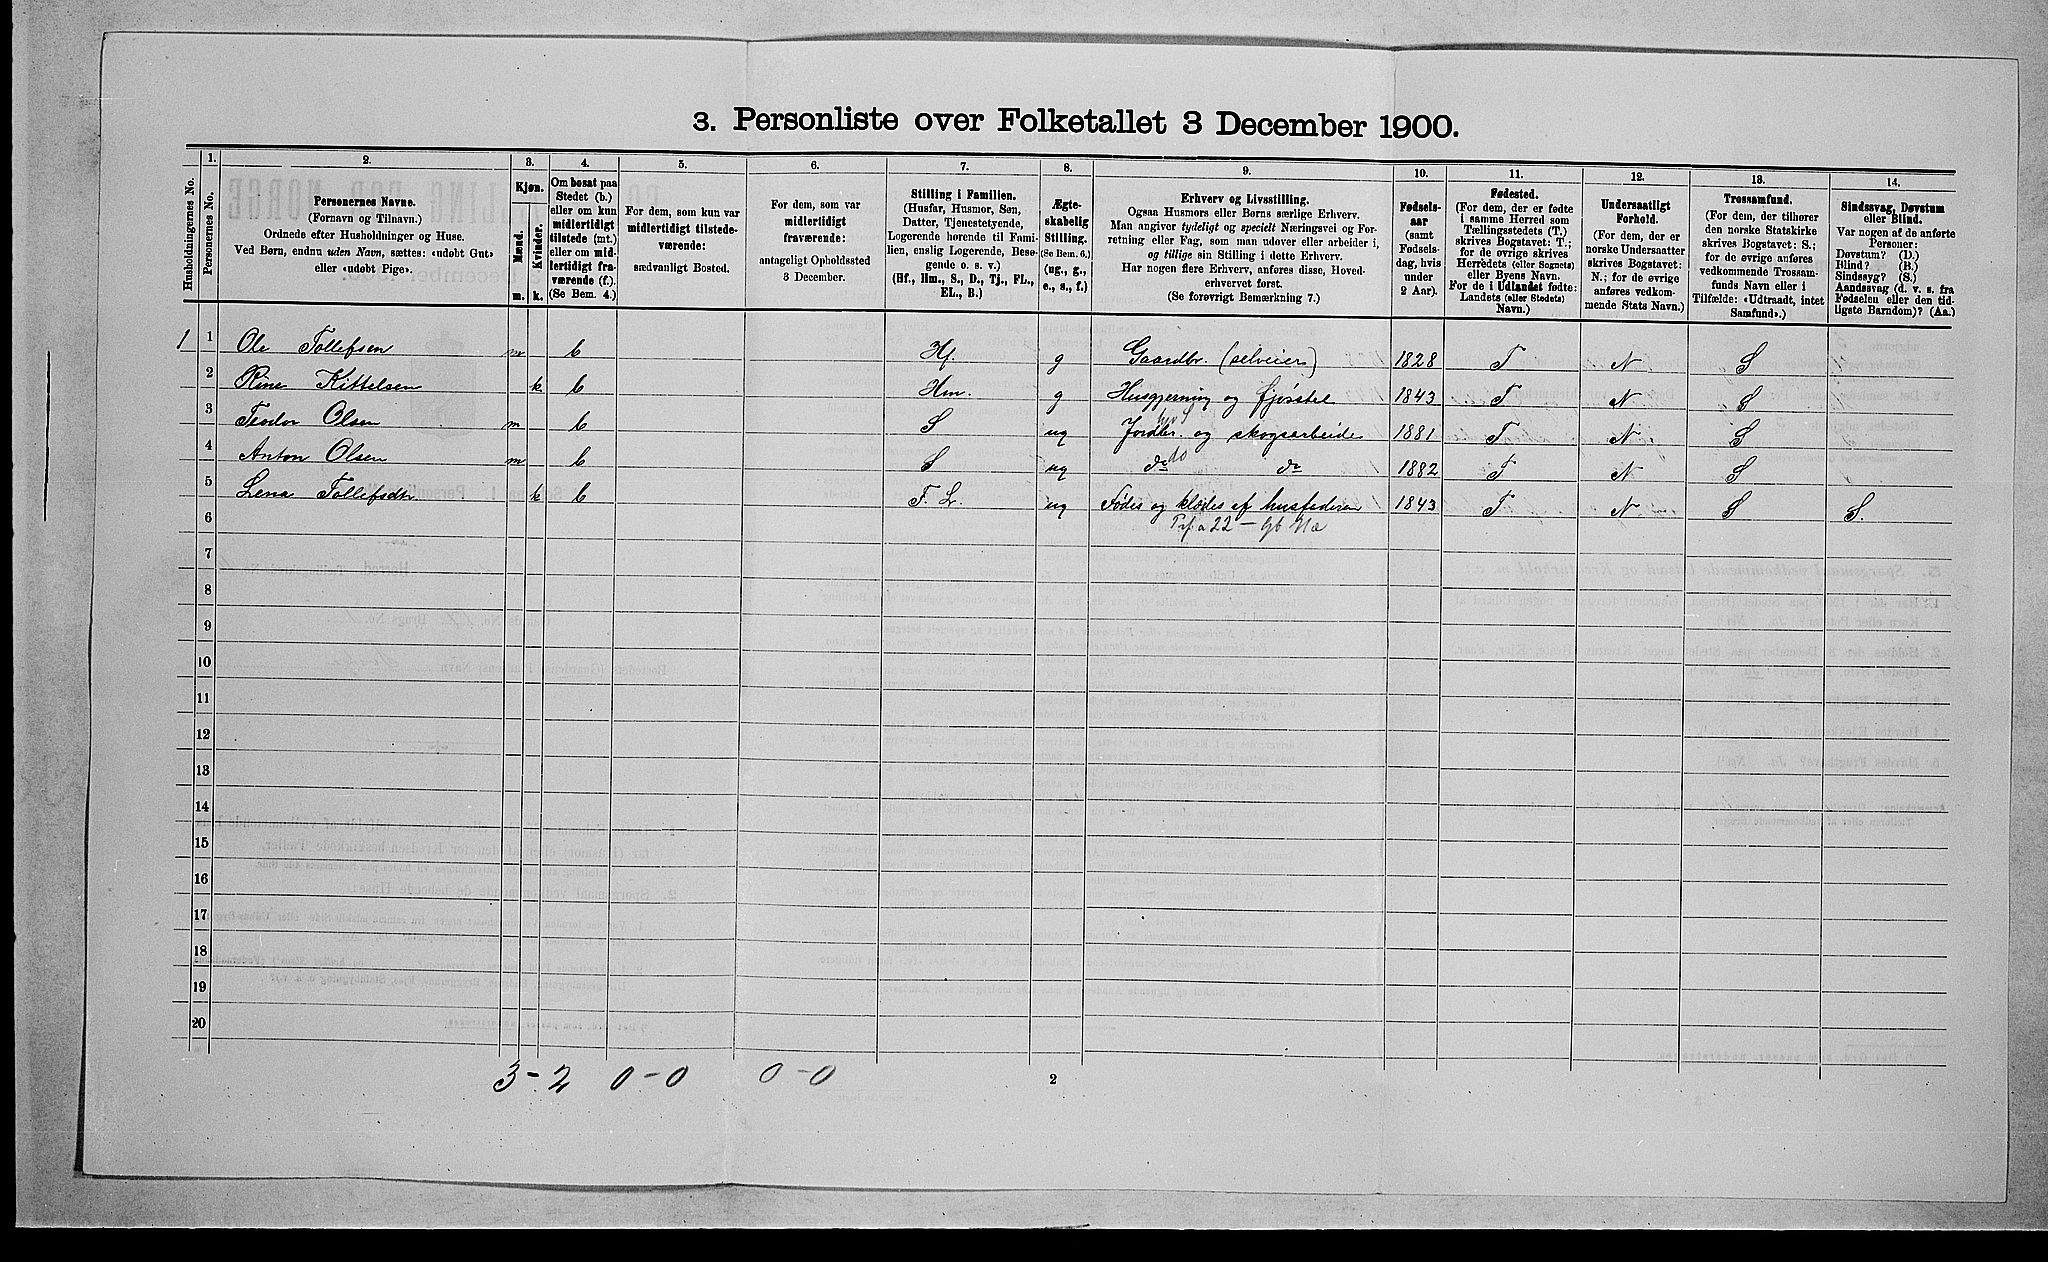 3. Personliste over Folketallet 3 December 1900.
Husholdningernes No.
1.
Personernes No.
2.
Personernes Navne.
(Fornavn og Tilnavn.)
Ordnede efter Husholdninger og Huse.
Ved Børn, endnu uden Navn, sættes: «udøbt Gut»
eller «udøbt Pige».
3.
Kjøn.
Mænd.
Kvinder.
m.
k.
4.
Om bosat paa
Stedet (b.)
eller om kun
midlertidigt
tilstede (mt.)
eller om mid-
lertidigt fra-
værende (f.).
(Se Bem. 4.)
5.
For dem, som kun var
midlertidigt tilstede-
værende:
sædvanligt Bosted.
6.
For dem, som var
midlertidigt
fraværende:
antageligt Opholdssted
3 December.
7.
Stilling i Familien.
(Husfar, Husmor, Søn,
Datter, Tjenestetyende,
Logerende hørende til Fami-
lien, enslig Logerende, Besø-
gende o. s. v.)
(Hf., Hm., S., D., Tj., FL.,
EL., B.)
8.
Ægte-
skabelig
Stilling.
(Se Bem. 6.)
(ug., g.,
e., s., f.)
9.
Erhverv og Livsstilling.
Ogsaa Husmors eller Børns særlige Erhverv.
Man angiver tydeligt og specielt Næringsvei og For-
retning eller Fag, som man udøver eller arbeider i,
og tillige sin Stilling i dette Erhverv.
Har nogen flere Erhverv, anføres disse, Hoved-
erhvervet først.
(Se forøvrigt Bemærkning 7.)
10.
Fødsels-
aar
(samt
Fødsels-
dag, hvis
under
2 Aar).
11.
Fødested.
(For dem, der er fødte
i samme Herred som
Tællingsstedets (T.)
skrives Bogstavet: T.;
for de øvrige skrives
Herredets (eller Sognets)
eller Byens Navn.
For de i Udlandet fødte:
Landets (eller Stedets)
Navn.)
12.
Undersaatligt
Forhold.
(For dem, der er
norske Undersaatter
skrives Bogstavet:
N.; for de øvrige
anføres vedkom-
mende Stats Navn.)
13.
Trossamfund.
(For dem, der tilhører
den norske Statskirke
skrives Bogstavet: S.;
for de øvrige anføres
vedkommende Trossam-
funds Navn eller i
Tilfælde: «Udtraadt, intet
Samfund».)
14.
Sindssvag, Døvstum
eller Blind.
Var nogen af de anførte
Personer:
Døvstum? (D.)
Blind? (B.)
Sindssyg? (S.)
Aandssvag (d. v. s. fra
Fødselen eller den tid-
ligste Barndom)? (Aa.)
1 1 Ole Tollefsen m b Hf. g Gaardbr. (selveier) 1828 T N S
2 Rine Kittelsen k b Hm. g Husgjerning og fjøsstel 1843 T N S
3 Teodor Olsen m b S ug Jordbr. og skogsarbeide 1881 T N S
4 Anton Olsen m b S ug do do do 1882 T N S
5 Lena Tollefsdtr k b F. L. ug Fødes og klædes af husfaderen 1843 T N S S.
6
7
8
9
10
11
12
13
14
15
16
17
18
19
20
3 - 2 0 - 0 0 - 0
2